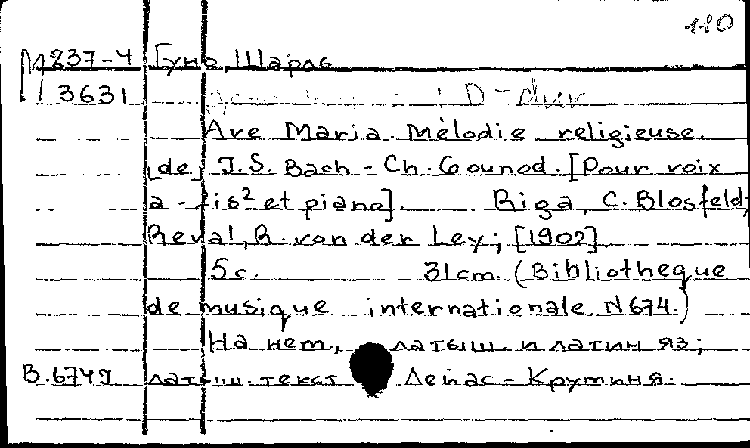 110
М 237-4 Гуно, Шарль
3631 D-dur
Ave Maria. Mélodie religieuse.
[de] J.S. Bach - Ch. Gounod. [Pour voix
a - fis² et piano]. Riga, C. Blosfeld;
Reval, R. von der Ley; [1902]
5 c. 31 cm. (Bibliotheque
de musique internationale N 674.)
На нем., латыш. и латин яз;
В.6749 латыш. текст Лейас-Крумыня.